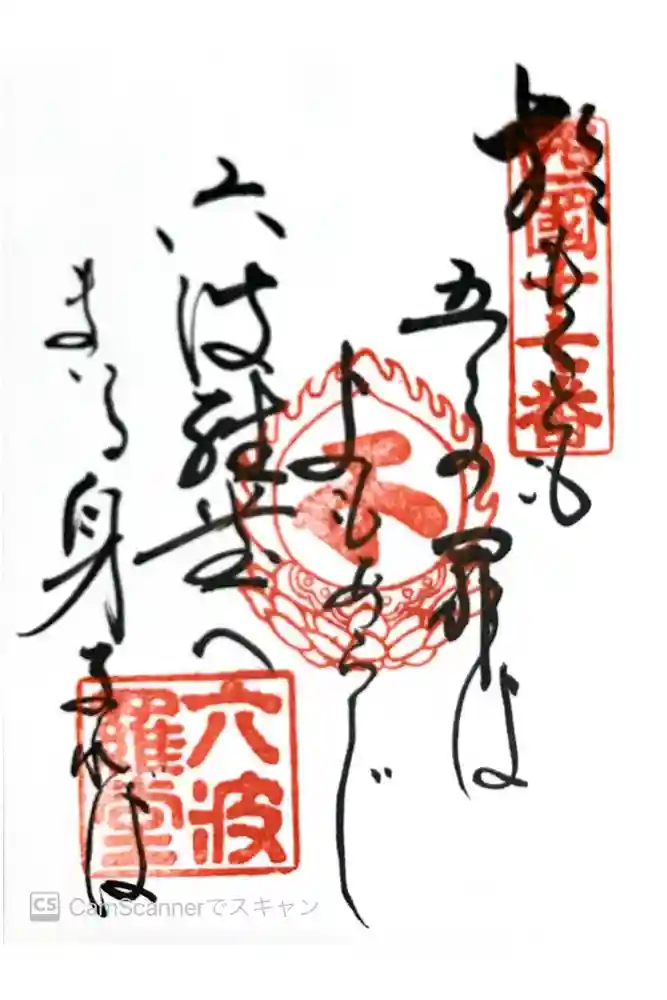 西國十七番
於もくとも
五つの罪は
よもあらじ
六波羅堂へ
まいる身なれは
六波
羅堂
CS CamScannerでスキャン